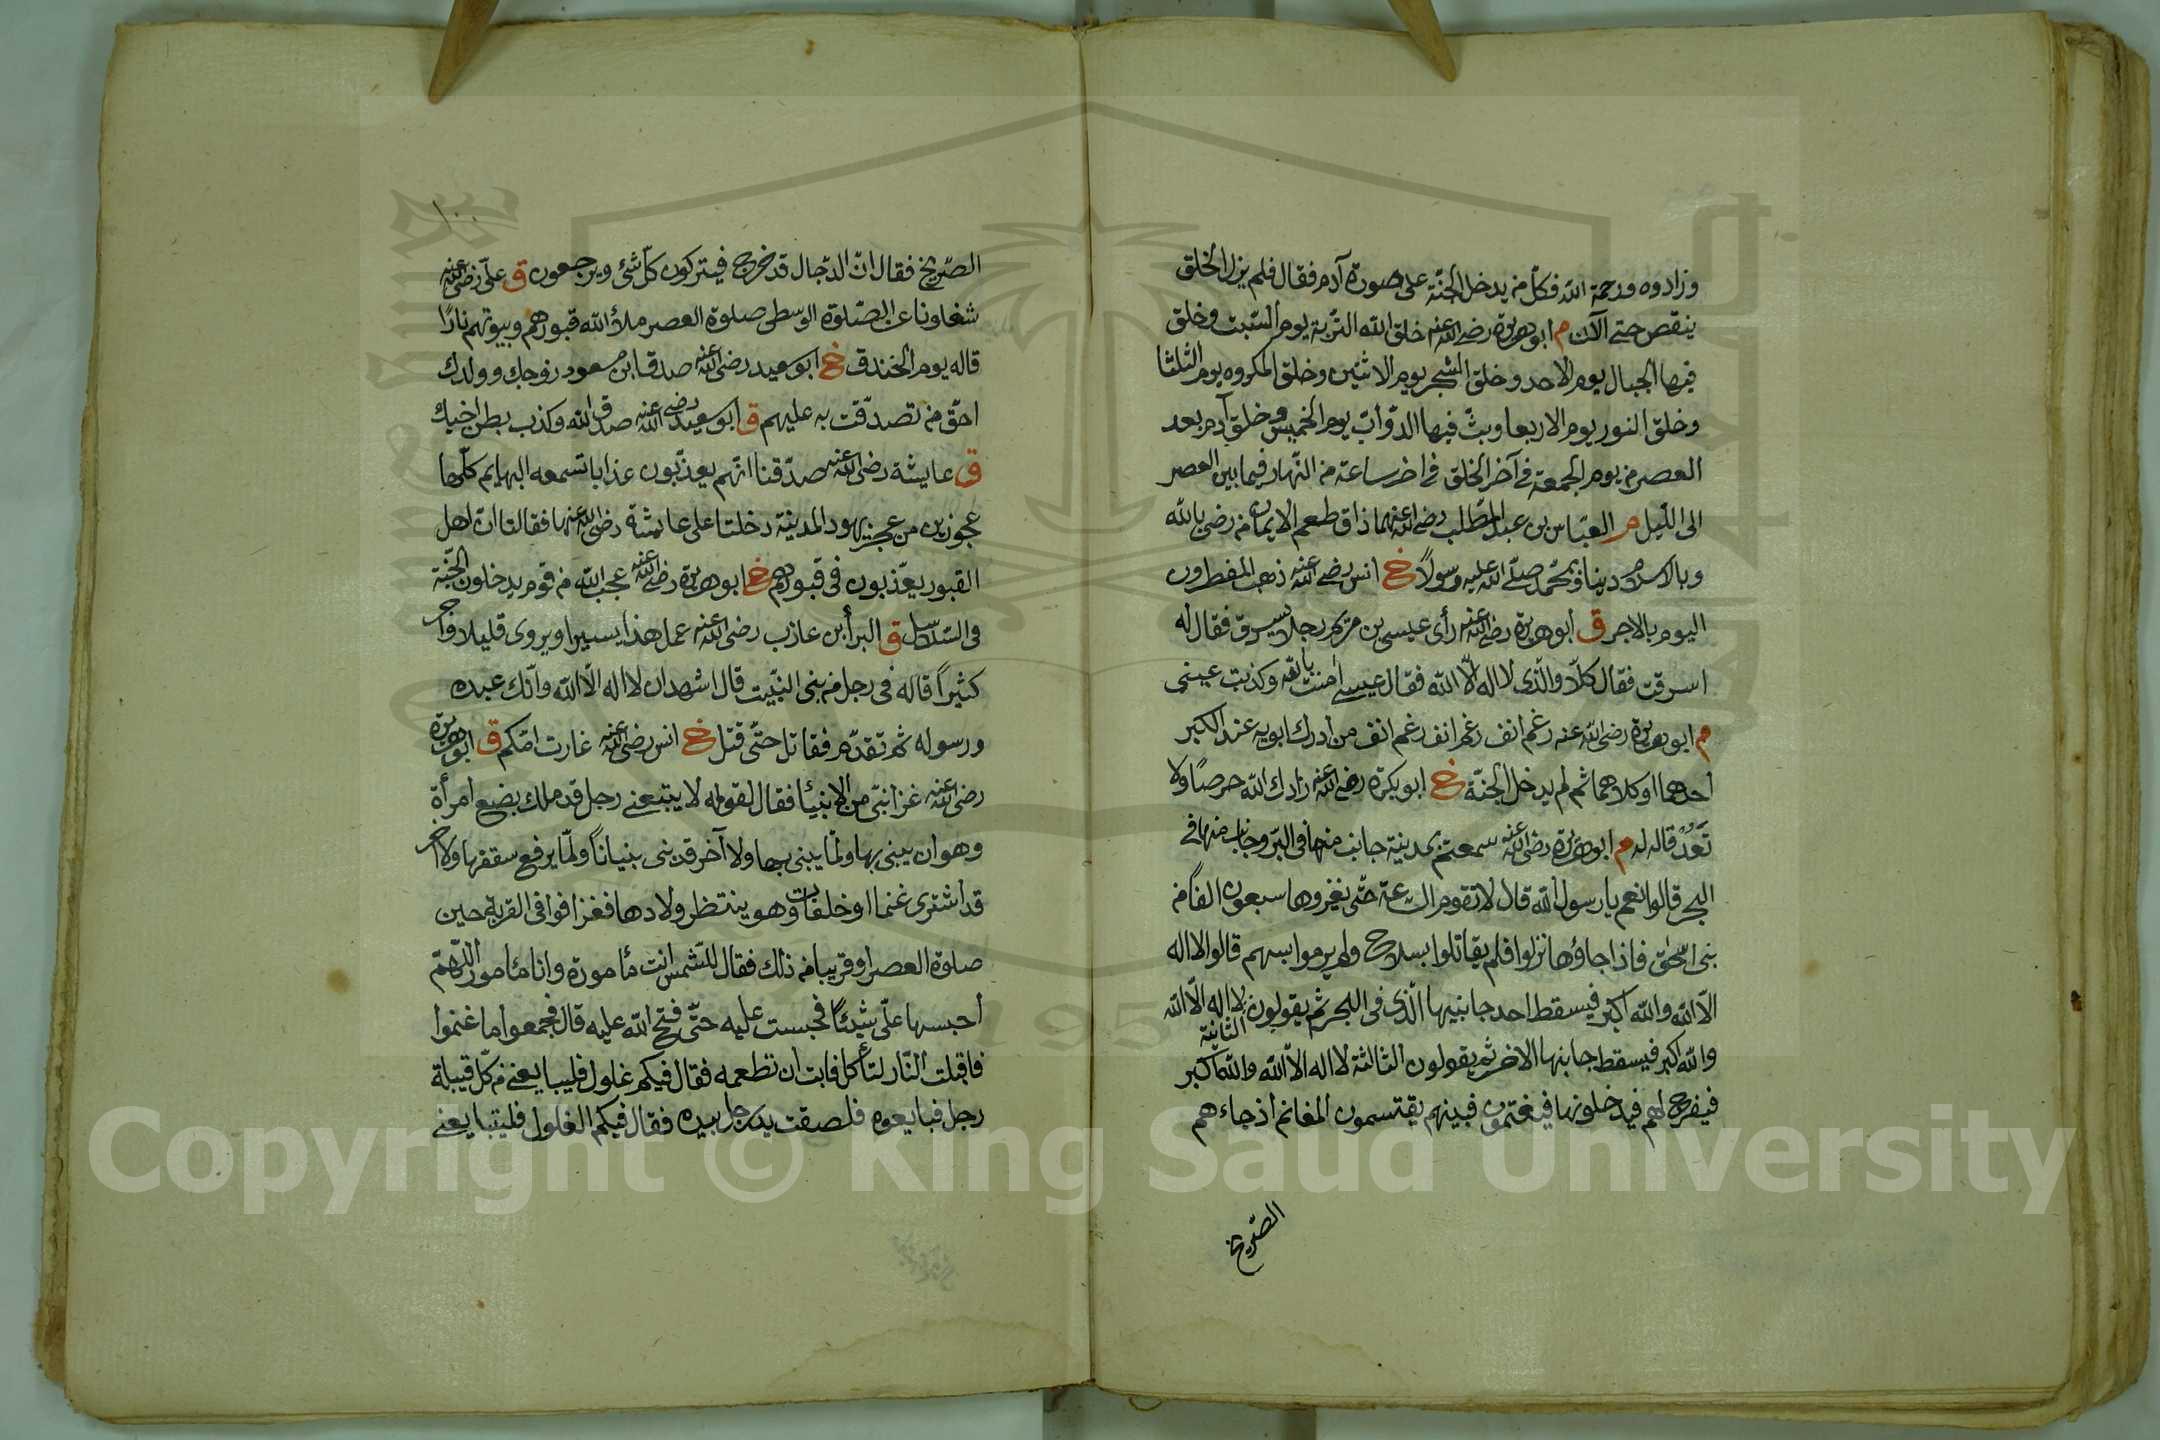 وزادوه ورحمة الله فكل من يدخل الجنة على صورة آدم فقال فلم يزل الخلق
ينقص حتى الآن م ابو هريرة رضى الله عنه خلق الله التربة يوم السبت وخلق
فيها الجبال يوم الاحد وخلق الشجر يوم الاثنين وخلق المكروه يوم الثلثا
وخلق النور يوم الاربعا وبث فيها الدواب يوم الخميس وخلق آدم بعد
العصر من يوم الجمعة فى آخر الخلق فى اخر ساعة من النهار فيما بين العصر
الى الليل م العباس بن عبد المطلب رضى الله عنهما ذاق طعم الايمان من رضى بالله
وبالاسلام دينا وبمحمد صلى الله عليه وسولاً خ انس رضى الله عنه ذهب المفطرون
اليوم بالاجر ق أبو هريرة رضى الله عنه رأى عيسى بن مريم رجلا يسرق فقال له
اسرقت فقال كلا والذى لا اله الا الله فقال عيسى امنت بالله وكذبت عينى
م ابو هريرة رضى الله عنه رغم انف رغم انف رغم انف من أدرك ابويه عند الكبر
احدهما او كلاهما ثم لم يدخل الجنة خ ابو بكرة رضى الله عنه زادك الله حرصًا ولا
تَعُدْ قاله له م ابو هريرة رضى الله عنه سمعتم بمدينة جانب منها فى البر وجانب منها فى
البحر قالوا نعم يا رسول الله قال لا تقوم الساعة حتى يغزوها سبعون الفا من
بنى اسحق فاذا جاؤها نزلوا فلم يقاتلوا بسلاح ولم يرموا بسهم قالوا لا اله
الا الله والله اكبر فيسقط احد جانبيها الذى فى البحر ثم يقولون الثانية لا اله الا الله
والله اكبر فيسقط جانبها الاخر ثم يقولون الثالثة لا اله الا الله والله اكبر
فيفرج لهم فيدخلونها فيغنمون فبينهم يقتسمون المغانم اذ جاءهم
الصّريخ
١٠٠
الصّريخ فقال ان الدجال قد خرج فيتركون كل شئ ويرجعون ق علىّ رضى الله عنه
شغلونا عن الصلوة الوسطى صلوة العصر ملأ الله قبورهم وبيوتهم نارًا
قاله يوم الخندق خ ابو سعيد رضى الله عنه صدق ابن مسعود زوجك وولدك
احق من تصدقت به عليهم ق ابو سعيد رضى الله عنه صدق الله وكذب بطن اخيك
ق عايشة رضى الله عنه صدقنا انهم يعذبون عذابا تسمعه البهايم كلها
عجوزين من عجز يهود المدينة دخلتا على عايشة رضى الله عنها فقالتا ان اهل
القبور يعذبون فى قبورهم خ ابو هريرة رضى الله عنه عجب الله من قوم يدخلون الجنة
فى السلاسل ق البرأ بن عازب رضى الله عنه عمل هذا يسيرا ويروى قليلا واجر
كثيراً قاله فى رجل من بنى النبيت قال اشهد ان لا اله الا الله وانك عبده
ورسوله ثم تقدم فقاتل حتى قتل خ انس رضى الله عنه غارت امكم ق ابو هريرة
رضى الله عنه غزا نبى من الانبيأ فقال لقومه لا يتبعنى رجل قد ملك بضع امرأة
وهو ان يبنى بها ولما يبنى بها ولا آخر قد بنى بنياناً ولما يرفع سقفها ولا اخر
قد اشترى غنما او خلفات وهو ينتظر ولادها فغزا فوافى القرية حين
صلوة العصر او قريبا من ذلك فقال للشمس انت مأمورة وانا مأمور اللهم
احبسها علىّ شيئاً فحبست عليه حتى فتح الله عليه قال فجمعوا ما غنموا
فاقبلت النار لتأكل فابت ان تطعمه فقال فيكم غلول فليبايعنى من كل قبيلة
رجل فبايعوه فلصقت يد رجل بيده فقال فيكم الغلول فليتبايعنى
Copyright © King Saud University
1957